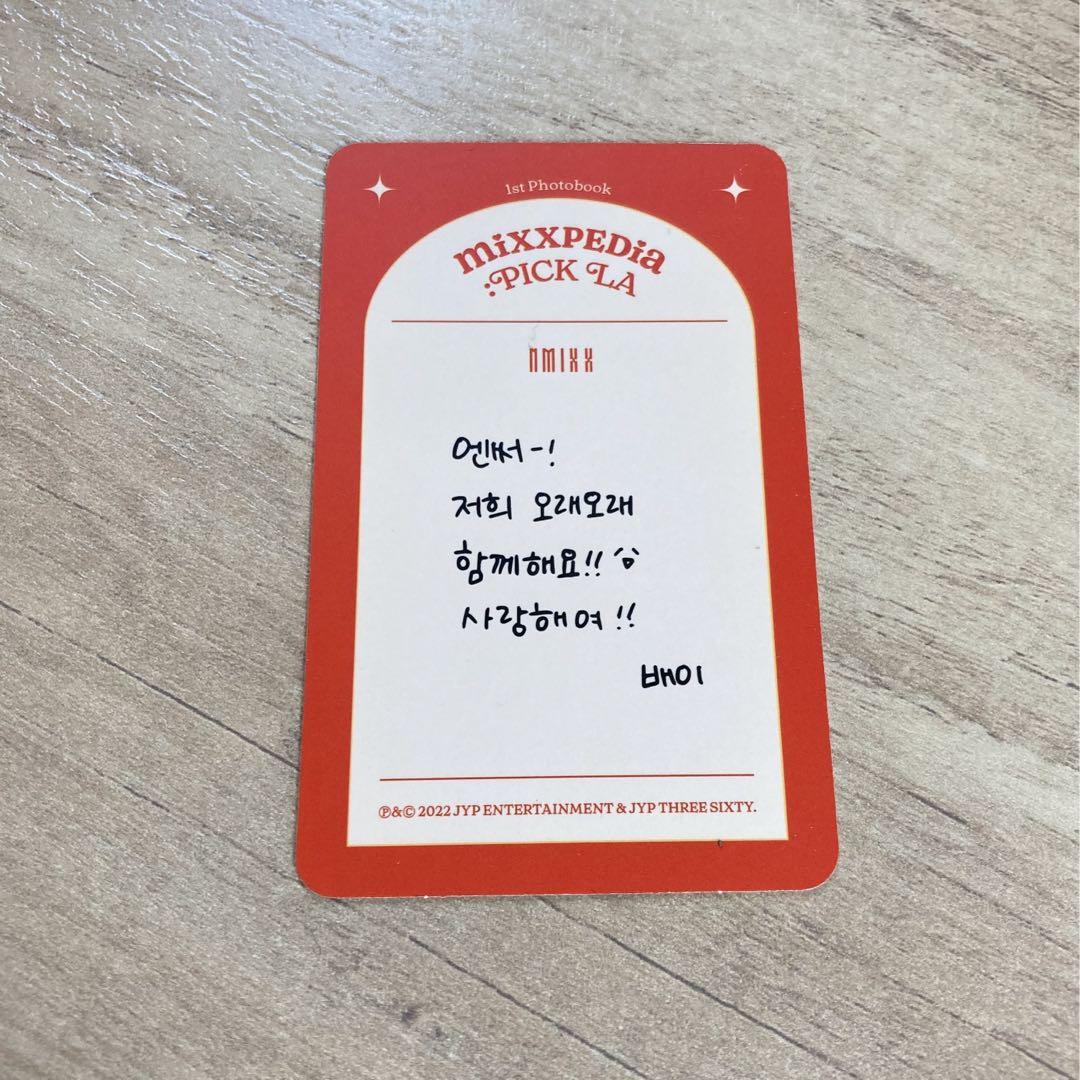 1st Photobook
mixxPEDia
:PICK LA
NMIXX
엔써-!
저희 오래오래
함께해요!!
사랑해여!!
배이
℗&© 2022 JYP ENTERTAINMENT & JYP THREE SIXTY.